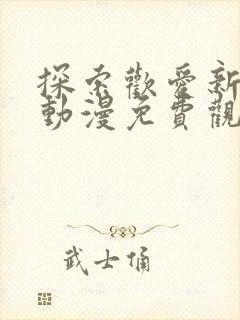 探索歡愛新
動漫免費觀
武士俑